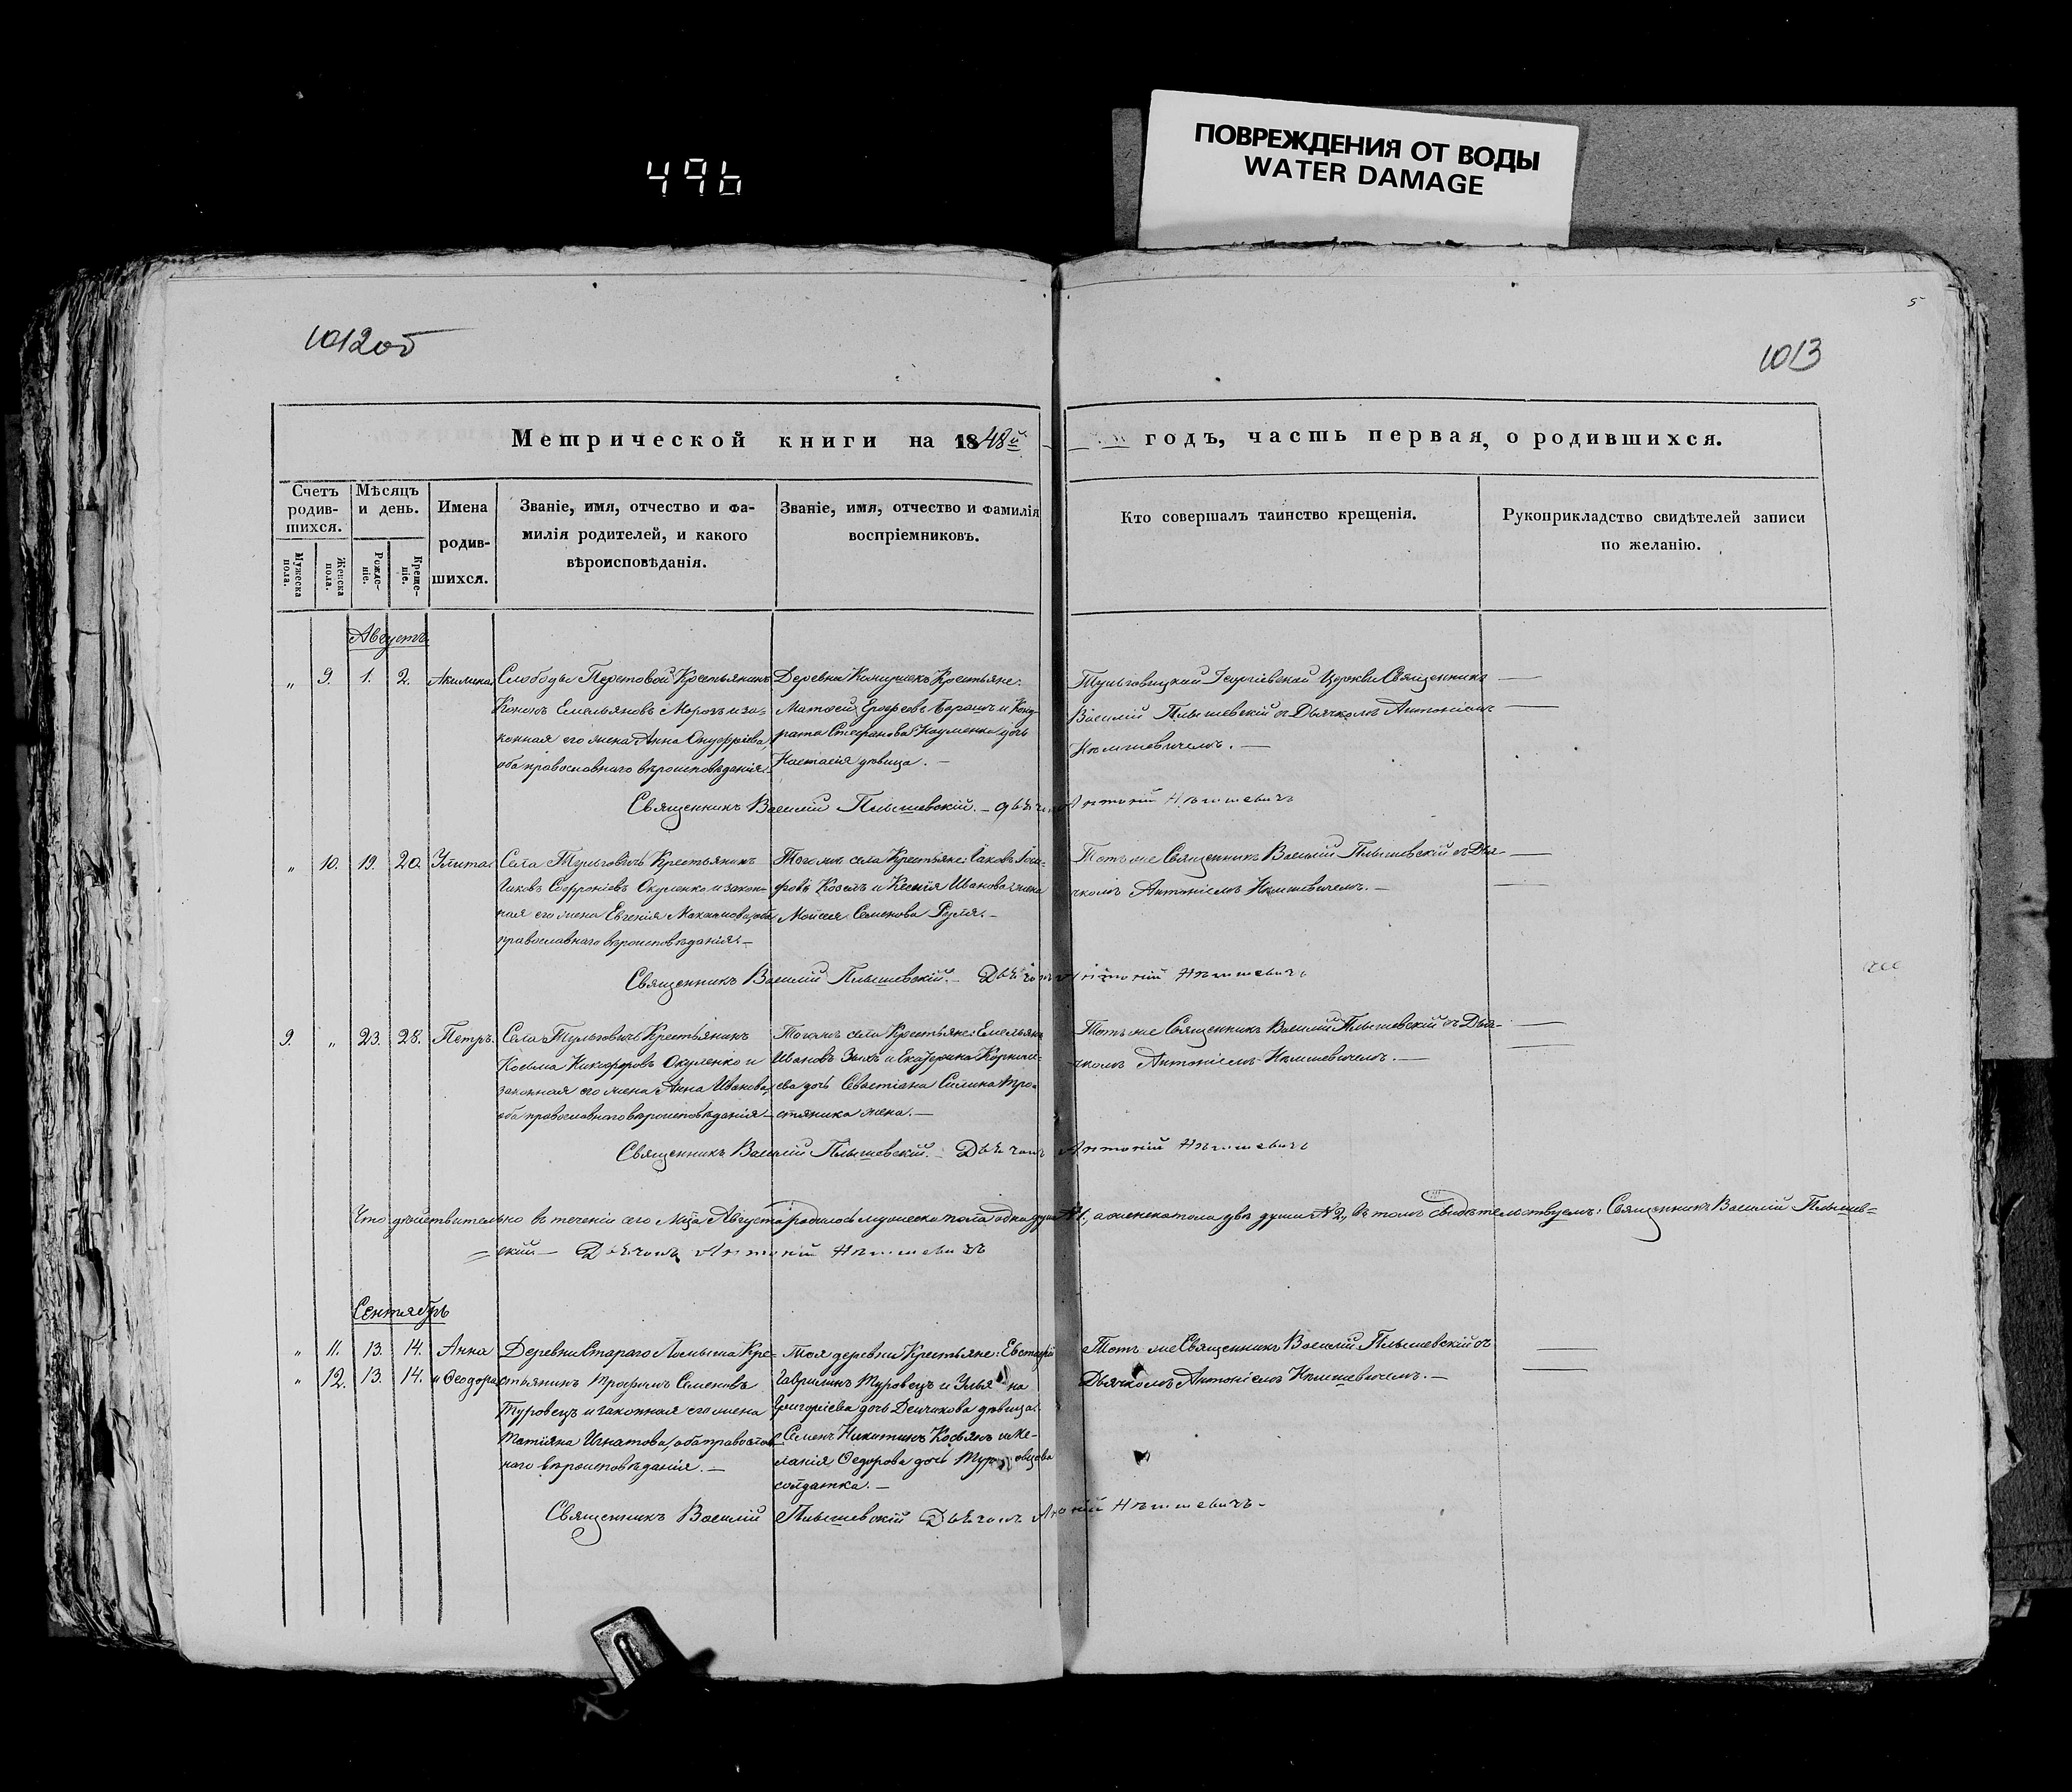 ПОВРЕЖДЕНИЯ ОТ ВОДЫ
WATER DAMAGE
496
5
1012об
1013
Метрической книги на 1848й годъ, часть первая, о родившихся.
Счетъ родив-шихся.
Мужеска пола.
Женска пола.
Мѣсяцъ и день.
Рожде-ніе.
Креще-ніе.
Имена родив-шихся.
Званіе, имя, отчество и фа-
милія родителей, и какого
вѣроисповѣданія.
Званіе, имя, отчество и фамилія
воспріемниковъ.
Кто совершалъ таинство крещенія.
Рукоприкладство свидѣтелей записи
по желанію.
Августъ
„ 9. 1. 2. Акилина
Слободы Перетовой Крестьянинъ
Кононъ Емельяновъ Морозъ и за-
конная его жена Анна Онуфріева,
оба православнаго вѣроисповѣданія.
Деревни Крестьяне:
Матѳей Ерофеевъ и Конд-
рата Стефанова Науменка дочь
Настасія дѣвица. —
Тульговицкой Георгіевской Церкви Священникъ
Василій Плышевскій съ Дьячкомъ Антоніемъ
Нѣмшевичемъ. —
Священникъ Василій Плышевскій. — Дьячокъ Антоній Нѣмшевичъ
„ 10. 19. 20. Улита.
Села Тульговичъ Крестьянинъ
Іаковъ Софроніевъ Окуленко и закон-
ная его жена Евгенія Максимова, оба
православнаго вѣроисповѣданія. —
Тогожъ села Крестьяне: Іаковъ Іоси-
фовъ Козелъ и Ксенія Иванова жена
Моисея Семенова —
Тотъ же Священникъ Василій Плышевскій съ Дья-
чкомъ Антоніемъ Нѣмшевичемъ. —
Священникъ Василій Плышевскій. — Дьячокъ Антоній Нѣмшевичъ
9. „ 23. 28. Петръ.
Села Тульговичъ Крестьянинъ
Косьма Никифоровъ Окуленко и
законная его жена Анна Иванова,
оба православнаго вѣроисповѣданія —
Тогожъ села Крестьяне: Емельянъ
Ивановъ и Екатерина Корнилі-
ева дочь Севастіана Силина Тро-
стяника жена. —
Тотъ же Священникъ Василій Плышевскій съ Дья-
чкомъ Антоніемъ Нѣмшевичемъ. —
Священникъ Василій Плышевскій. — Дьячокъ Антоній Нѣмшевичъ
Что дѣйствительно въ теченіи сего Мца Августа родилось мужеска пола одна душа №1, а женска пола двѣ души №2, въ томъ свидѣтельствуемъ: Священникъ Василій Плышев=
=скій — Дьячокъ Антоній Нѣмшевичъ
Сентябрь
„ 11. 13. 14. Анна
„ 12. 13. 14. и Ѳеодора
Деревни Стараго Кре-
стьянинъ Трофимъ Семеновъ
Туровецъ и законная его жена
Татіяна Игнатова, оба православ-
наго вѣроисповѣданія. —
Тоя деревни Крестьяне: Евстафій
Гавриловъ Туровецъ и Ульяна
Григоріева дочь дѣвица.
Семенъ Никитинъ и Ме-
ланія Ѳедорова дочь Туровцова
солдатка. —
Тотъ же Священникъ Василій Плышевскій съ
Дьячкомъ Антоніемъ Нѣмшевичемъ. —
Священникъ Василій Плышевскій Дьячокъ Нѣмшевичъ —